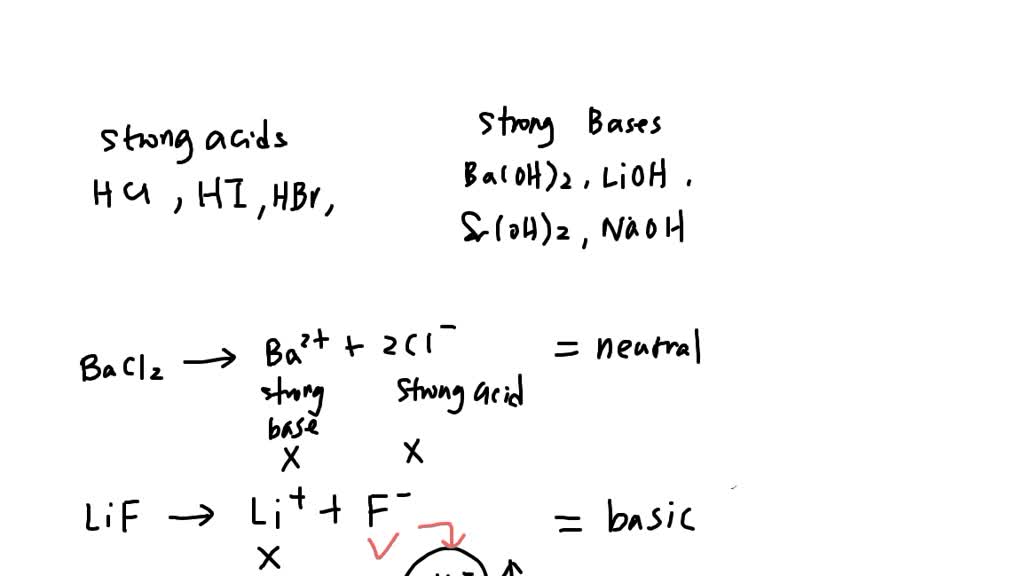 strong acids
HCl, HI, HBr,
Strong Bases
Ba(OH)2, LiOH.
Sr(OH)2, NaOH
BaCl2 → Ba²⁺ + 2Cl⁻ = neutral
strong base
Strong acid
X X
LiF → Li⁺ + F⁻ = basic
X ✓